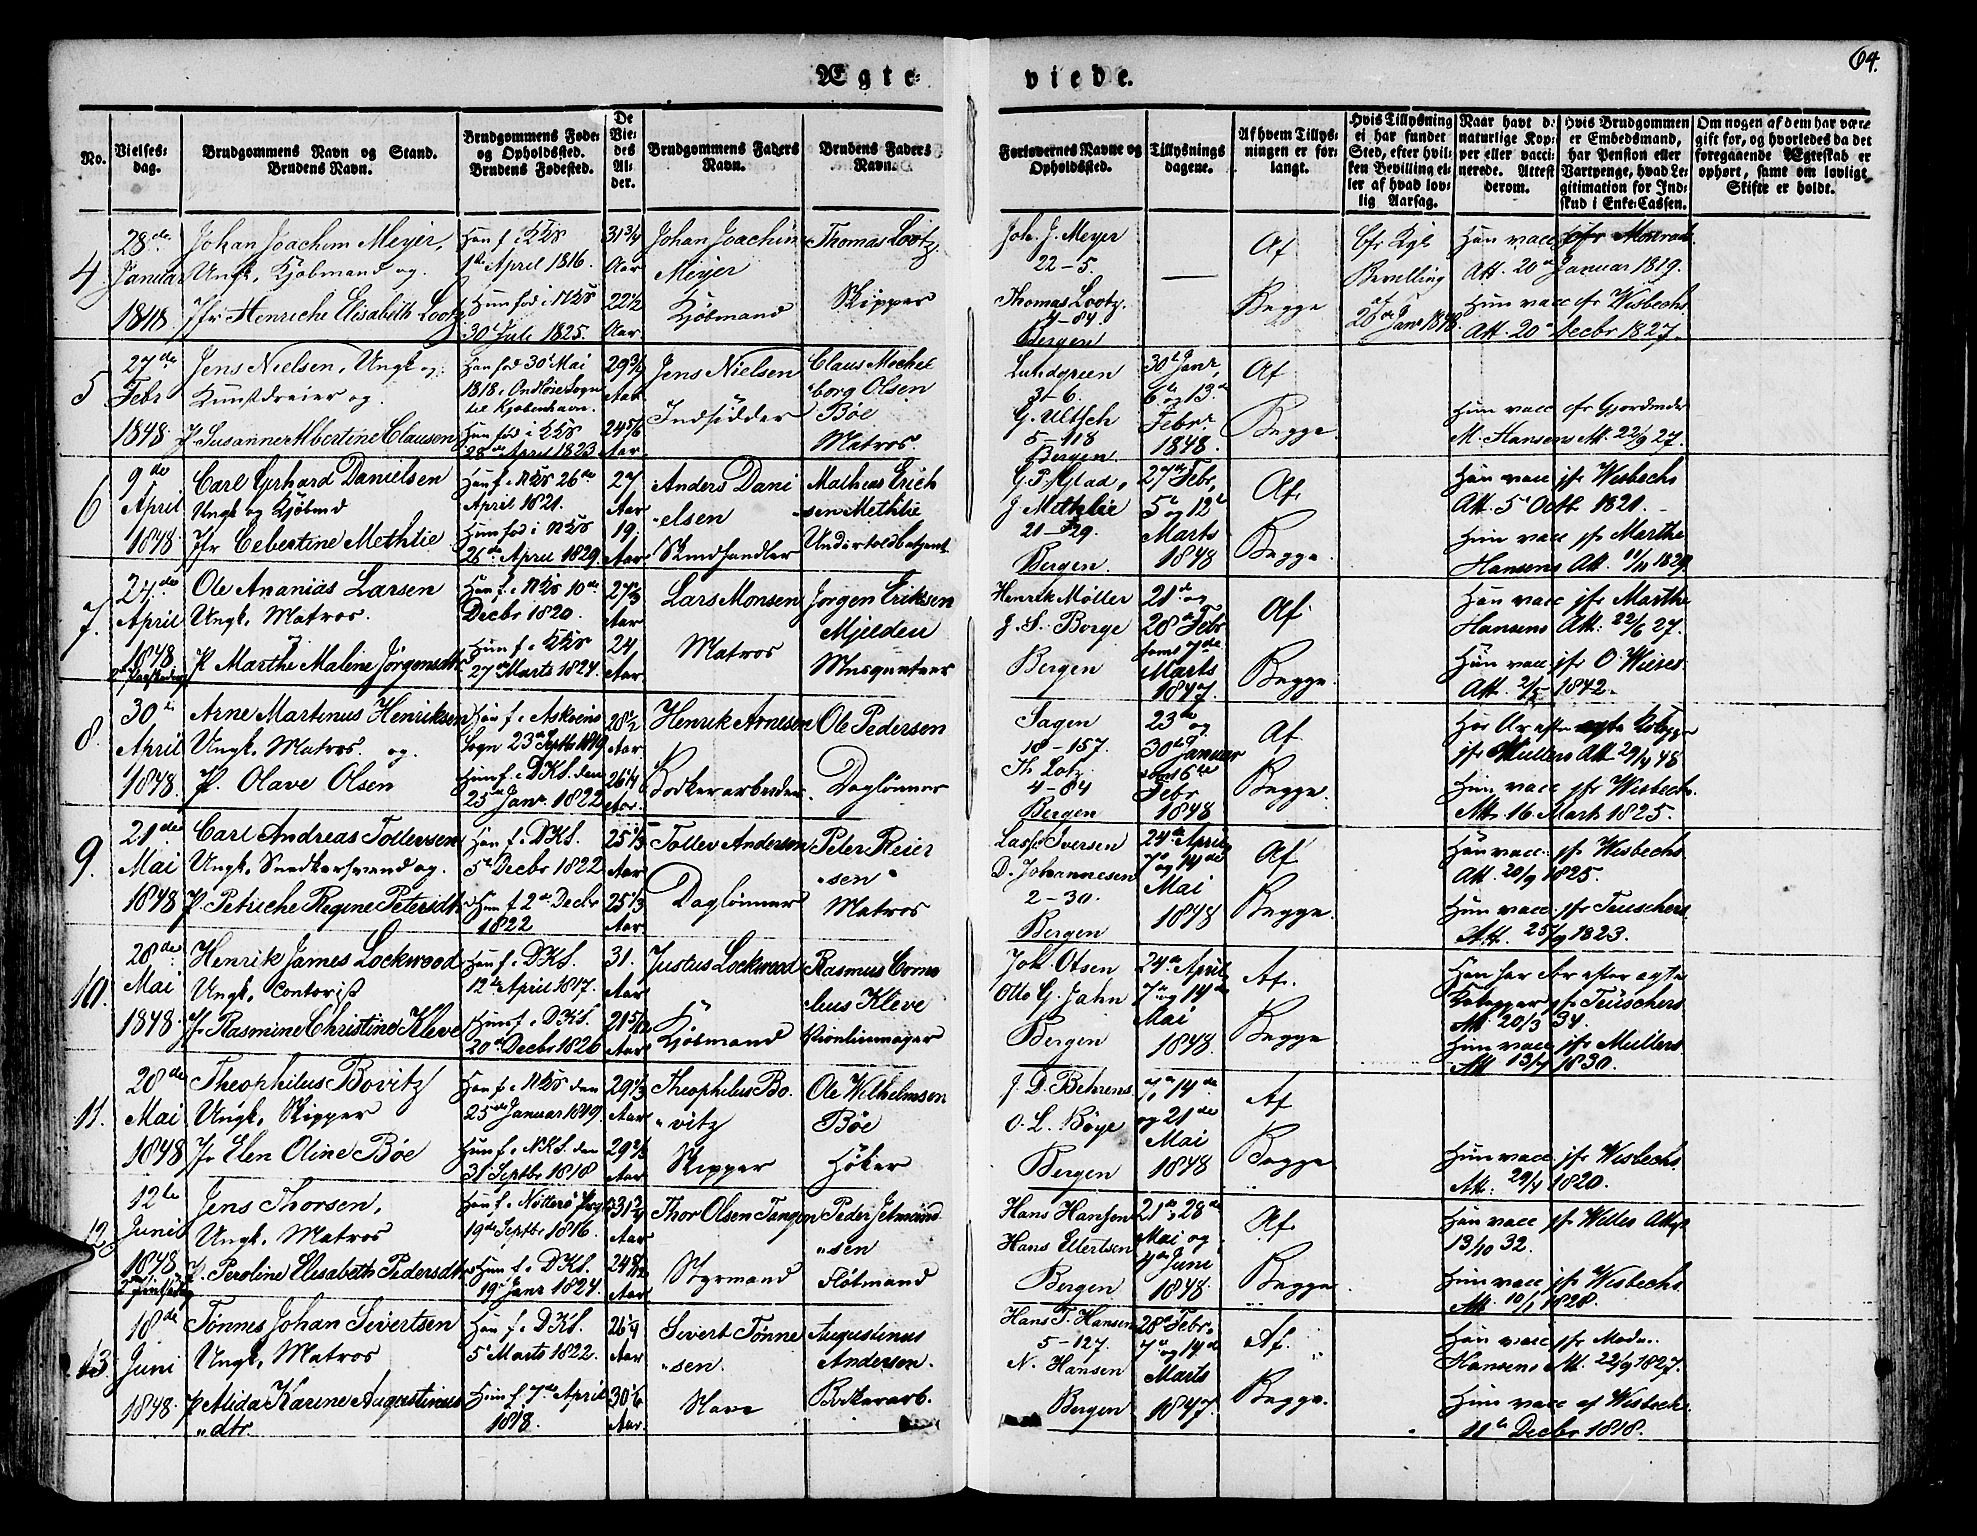 64.
Ægte-
viede.
No.
Vielses-
dag.
Brudgommens Navn og Stand.
Brudens Navn.
Brudgommens Føde-
og Opholdssted.
Brudens Fødested.
De
Vie-
des
Al-
der.
Brudgommens Faders
Navn.
Brudens Faders
Navn.
Forlovernes Navne og
Opholdssted.
Tillysnings
dagene.
Af hvem Tillys-
ningen er for-
langt.
Hvis Tillysning
ei har fundet
Sted, efter hvil-
ken Bevilling el-
ler af hvad lov-
lig Aarsag.
Naar havt de
naturlige Kop-
per eller vacci-
nerede. Attest
derom.
Hvis Brudgommen
er Embedsmand,
har Pension eller
Vartpenge, hvad Le-
gitimation for Ind-
skud i Enke-Cassen.
Om nogen af dem har været
gift før, og hvorledes da det
foregaaende Ægteskab er
ophørt, samt om lovligt
Skifte er holdt.
4
28de
Januar
1848
Johan Joachim Meyer,
Ungk, Kjøbmand og
Jfr Henriche Elisabeth Lootz
Han f. i KKs
1ste April 1816.
Hun fød i NKs
30 Juli 1825.
31 3/4
Aar
22 1/2
Aar
Johan Joachim
Meyer
Kjøbmand
Thomas Lootz
Skipper
Joh. J. Meyer
22-5.
Thomas Lootz.
4-84.
Bergen
Af
Begge
Cfr Kgl
Bevilling
af
28de Janr 1848
Han vacc
Att. 20de Januar 1819.
Hun vacc cfr Wisbechs
Att. 20de Decbr 1827.
5
27de
Febr
1848
Jens Nielsen, Ungk og
Kunstdreier og
P. Susanne Albertine Clausen
Han fød 30 Mai
1818 i Ondløse Sogn
til Kjøbenhavn.
Hun fød i KKs
28de April 1823
29 3/4
Aar
24 5/6
Aar
Jens Nielsen
Indsidder
Claus Mechel
borg Olsen
Bøe
Matros.
Lundgreen
31-6.
G. Ultsch
5-118
Bergen
30te Janr,
6te og 13de
Febr.
1848.
Af
Begge.
Hun vacc cfr Gjordmoder
M. Hansens Att. 22/9 27.
6
9de
April
1848
Carl Gerhard Danielsen
Ungk og Kjøbmd
Jfr Cebertine Methlie
Han f. NKs 26de
April 1821.
Hun fød i NKs
26de April 1829
27
Aar
19
Aar
Anders Dani
elsen
Skindhandler
Mathias Erich
sen Methlie
Undertoldbetjent
G. P. Glad,
J. Methlie
21-29.
Bergen.
27de Febr,
5te og 12te
Marts
1848
Af.
Begge.
Han vacc jfr Wisbechs
Att. 5 Octbr 1821.
Hun vacc jfr Marthe
Hansens Att. 11/11 1829
7.
24de
April
1848
2den Paaskedag
Ole Ananias Larsen
Ungk, Matros.
P. Marthe Maline Jørgensdtr
Han f. i NKs 10de
Decbr 1820.
Hun f. i KKs
27de Marts 1824.
27 1/3
Aar
24
Aar
Lars Monsen
Matros
Jørgen Eriksen
Mjelden
Musqueteer
Henrik Møller
J. S. Borge
Bergen
21de og
28de Febr
samt 7de
Marts
1847
Af
Begge.
Han vacc jfr Marthe
Hansens Att. 22/6 27.
Hun vacc jfr O. Wieses
Att. 2/5 1842.
8
30te
April
1848.
Arne Martinus Henriksen
Ungk, Matros og
P. Olave Olsen
Han f. i Askvens
Sogn 23de Septbr 1819
Hun f. i DKS. den
25de Janr. 1822
28 1/2
Aar
26 1/4
Aar.
Henrik Arnesen
Bødkerarbeider
Ole Pedersen
Daglønner
Sagen
18-157.
Th. Lotz
4-84
Bergen
23de og
30te Januar
samt 6te
Febr
1848
Af
Begge.
Har Ar efter ægte Kopper
jfr Mullers Att 29/4 48.
Hun vacc jfr Wisbechs
Att. 16 Marts 1825.
9.
21de
Mai
1848
Carl Andreas Tollevsen
Ungk, Snedkersvend og
P. Petriche Regine Petersdtr
Han f. i DKS.
5te Decbr 1822
Hun f. 2de Decbr
1822
25 1/3
Aar
25 1/3
Aar
Tollev Andersen
Daglønner
Peter Reier
sen
Matros
Lasse Iversen
D. Johannesen
2-30.
Bergen
24de April,
7de og 14de
Mai
1848
Af
Begge.
Han vacc jfr Wisbechs
Att. 20/9 1825.
Hun vacc. jfr Teuschers
Att. 25/9 1823.
10.
28de
Mai
1848
Henrik James Lockwood
Ungk, Contorist
Jfr Rasmine Christine Kleve
Han f. i DKS.
12te April 1817.
Hun f. i DKS.
20de Decbr 1826
31.
Aar
21 5/12
Aar
Justus Lockwood
Kjøbmand
Rasmus Corne
lius Kleve
Violinmager
Joh. Olsen
Otto G. Jahn
Bergen
24de April
7de og 14de
Mai
1848
Af.
Begge
Han har Ar efter ægte
Kopper jfr Teuschers
Att. 20/3 34.
Hun vacc jfr Mullers
Att. 13/4 1830.
11.
28de
Mai
1848
Theophilus Bovitz
Ungk, Skipper
Jfr Elen Oline Bøe
Han f. i NKs den
25de Januar 1819.
Hun f. i NKS. den
3de Septbr 1818
29 1/3
Aar
29 2/3
Aar
Theophilus Bo.
vitz
Skipper
Ole Wilhelmsen
Bøe
Høker
J. D. Behrens
O. L. Bøye
Bergen
7de, 14de
og 21de
Mai
1848
Af
Begge
Hun vacc jfr Wisbechs
Att: 29/4 1820.
12
12te
Juni
1848
2den Pintsedag
Jens Thorsen,
Ungk, Matros
P. Peroline Elisabeth Pedersdtr
Han f. i Nøtterø Prgj
19de Septbr 1816.
Hun f. i DKS.
19 Janr 1824.
31 3/4
Aar
24 5/12
Aar
Thor Olsen Tangen
Styrmand
Peder Jetmund
sen
Fløtmand
Hans Hansen
Hans Ellertsen
Bergen
21de, 28de
Mai og
4de Juni
1848
Af.
Begge.
Han vacc jfr Welles Att
13/10 32.
Hun vacc jfr Wisbechs
Att. 10/1 1828.
13
18de
Juni
1848.
Tønnes Johan Sivertsen
Ungk, Matros
P. Alida Karine Augustinus
dtr
Han f. i DKS.
5 Marts 1822.
Hun f. 7de April
1818.
26 1/4
Aar
30 1/6
Aar.
Sivert Tønne
sen.
Slave
Augustinus
Andersen.
Bødkerarb.
Hans T. Hansen
5-127.
N. Hansen
Bergen
28de Febr,
7de og 14de
Marts
1847.
Af.
Begge.
Han vacc jfr Made
Hansens Att. 22/9 1827.
Hun vacc af Wisbech.
11te Decbr 1818.